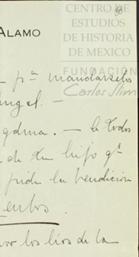 CENTRO DE
ESTUDIOS
DE HISTORIA
DE MEXICO
FUNDACIÓN
Carlos Slim
ALAMO
— pa mandarselos
angel. —
— de todos
de tu hijo qe
pide la bendición
por los lios de la